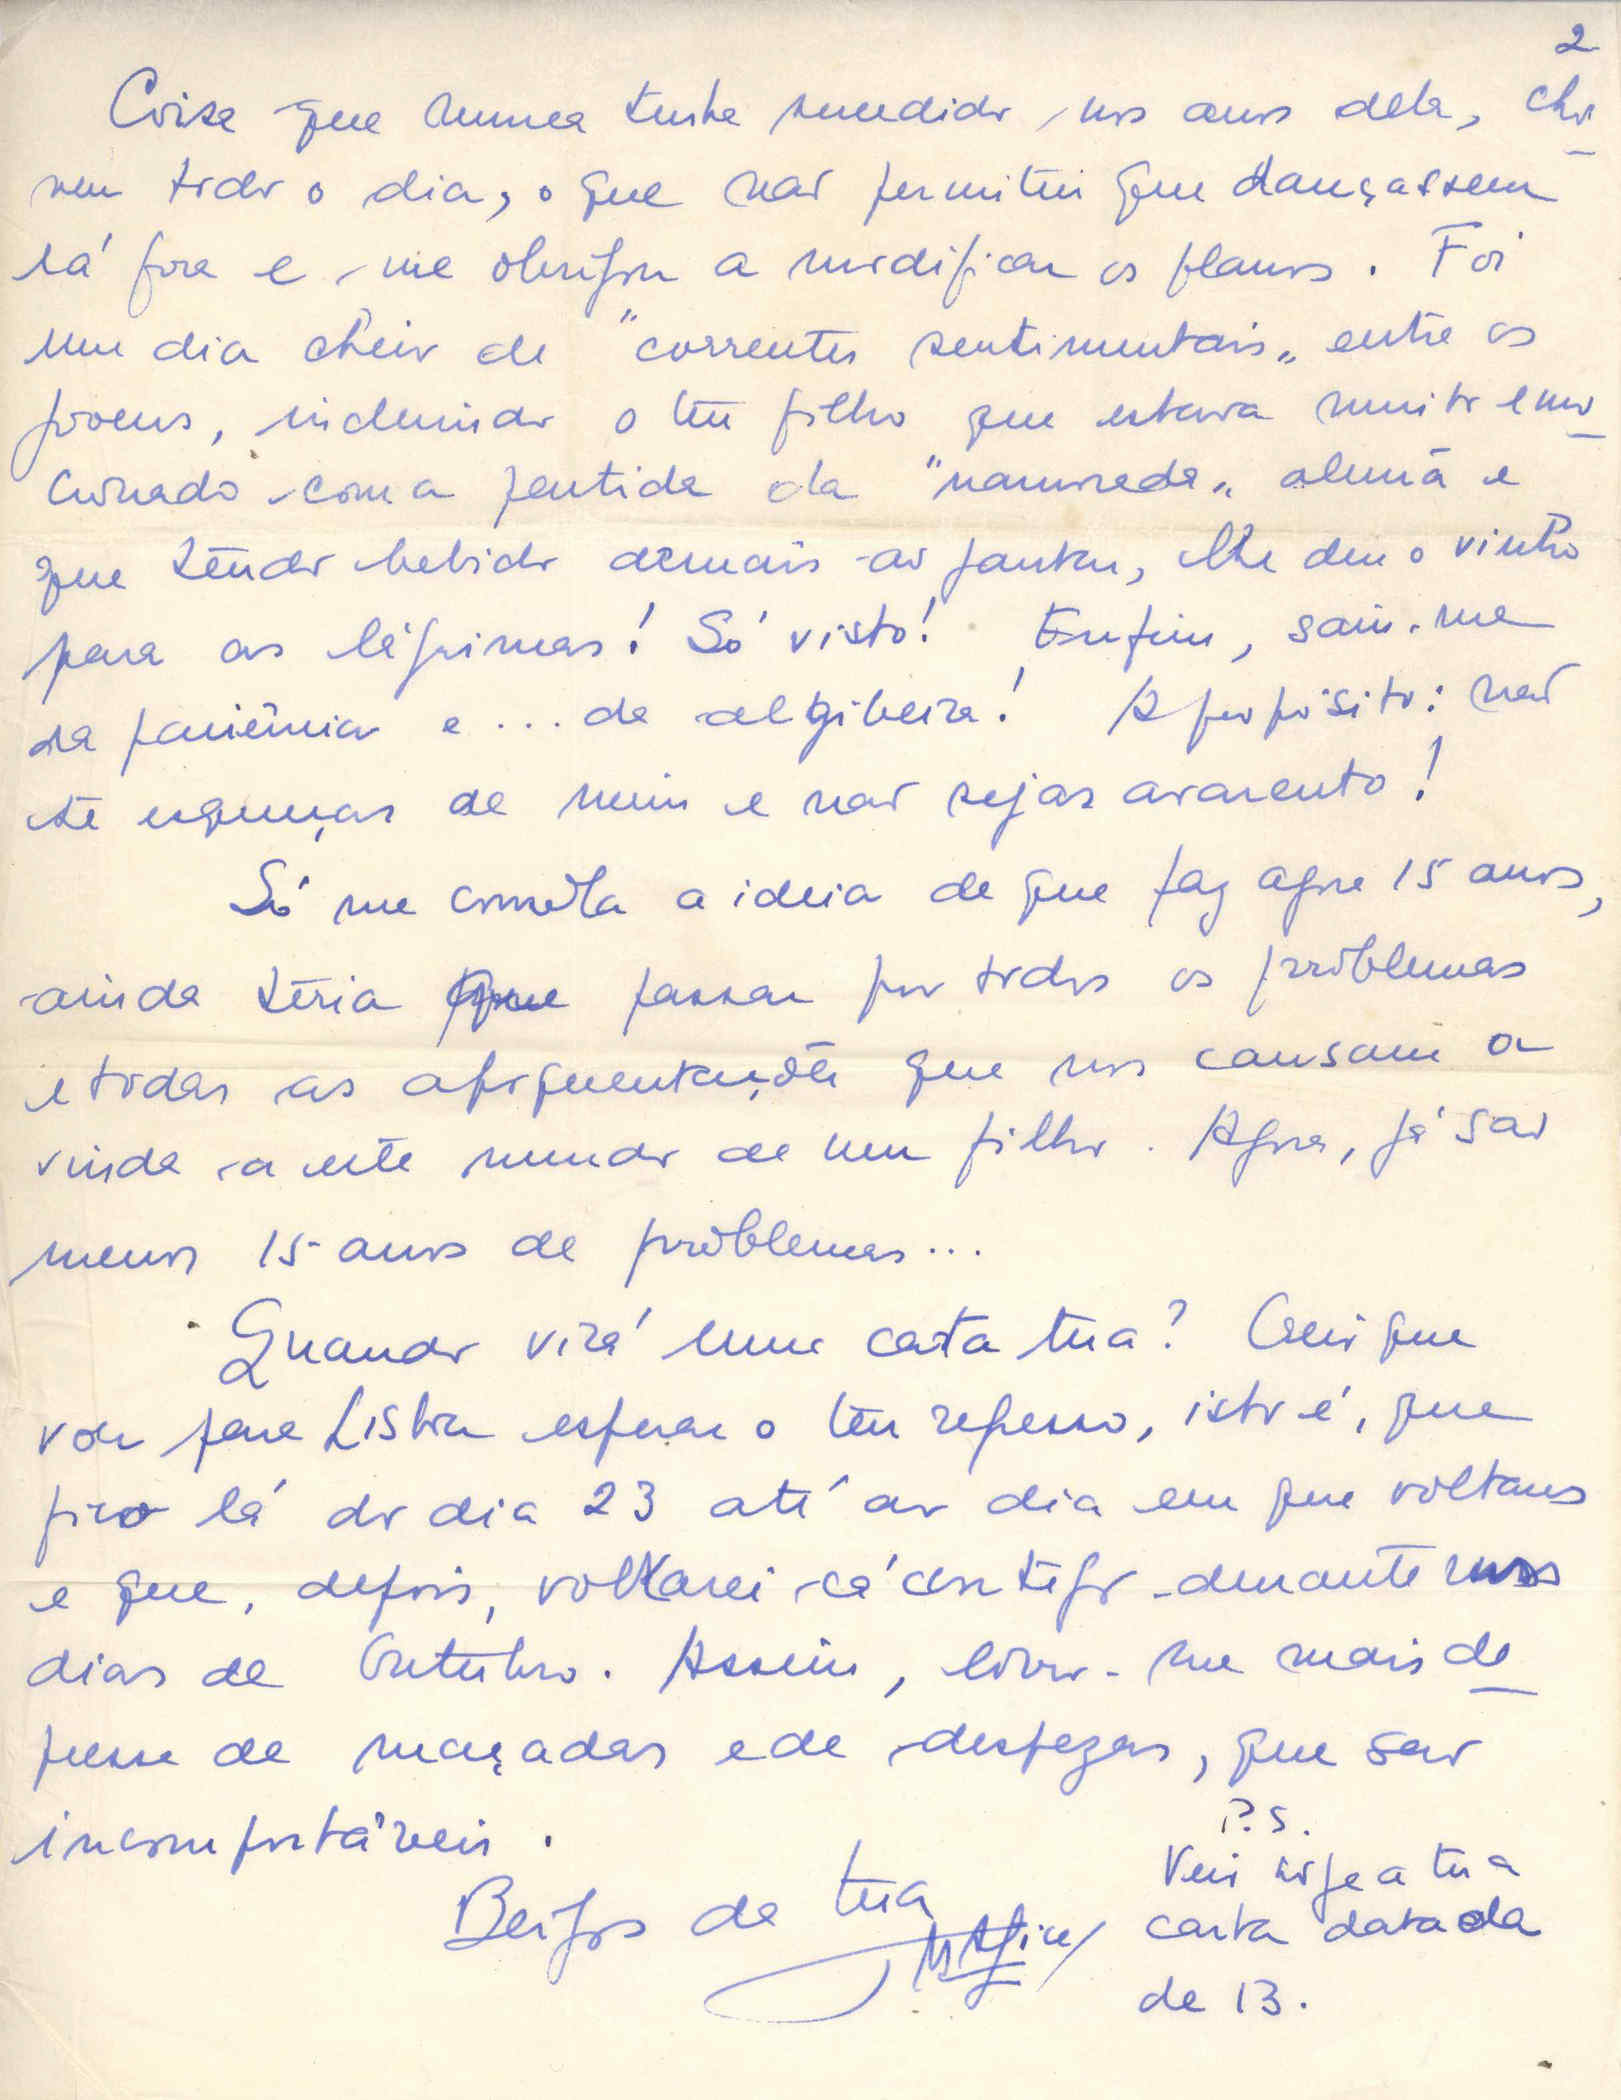 2
Coisa que nunca tinha sucedido nos anos dela, cho
veu todo o dia, o que não permitiu que dançassem
lá fora e me obrigou a modificar os planos. Foi
um dia cheio de "correntes sentimentais" entre os
jovens, incluindo o teu filho que estava muito emo
cionado com a partida da "namorada" alemã e
que tendo bebido demais ao jantar, lhe deu o vinho
para as lágrimas! Só visto! Enfim, saiu-me
da paciência e ... da algibeira! A propósito: não
te esqueças de mim e não sejas avarento!
Só me consola a ideia de que faz agora 15 anos,
ainda teria que passar por todos os problemas
e todas as apoquentações que nos causam a
vinda a este mundo de um filho. Agora, já são
menos 15 anos de problemas...
Quando virá uma carta tua? Creio que
vou para Lisboa esperar o teu regresso, isto é, que
fico lá do dia 23 até ao dia em que voltares
e que, depois, voltarei cá contigo durante uns
dias de Outubro. Assim, livro-me mais de
pressa de maçadas e de despezas, que são
incomportáveis.
Beijos da tua
P.S.
Veio hoje a tua
carta datada
de 13.